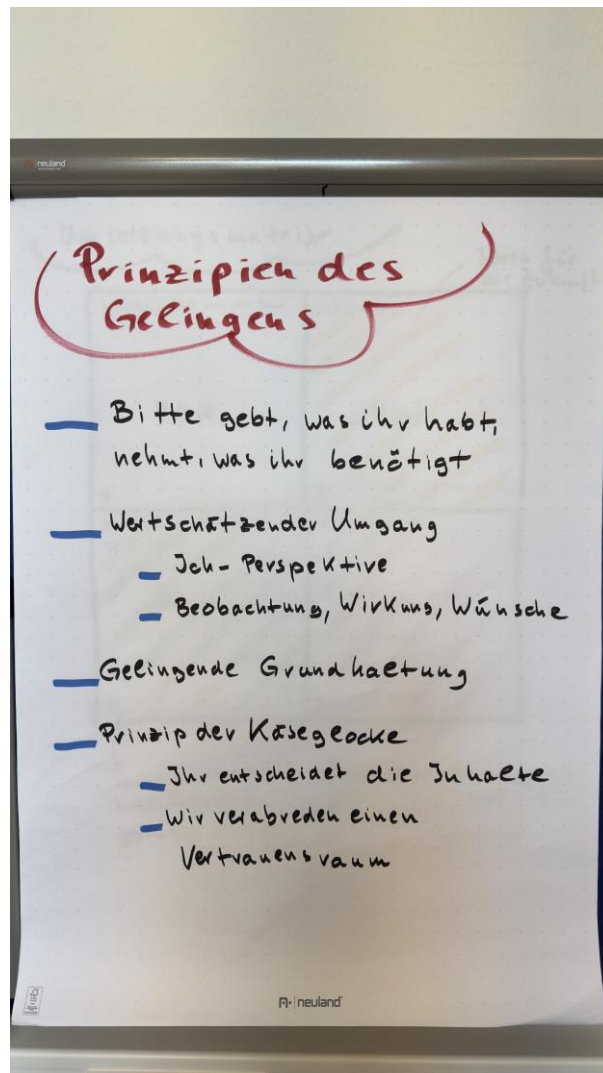 neuland
Prinzipien des
Gelingens
Bitte gebt, was ihr habt,
nehmt, was ihr benötigt
Wertschätzender Umgang
Ich - Perspektive
Beobachtung, Wirkung, Wünsche
Gelingende Grundhaltung
Prinzip der Käseglocke
Ihr entscheidet die Inhalte
Wir verabreden einen
Vertrauensraum
neuland